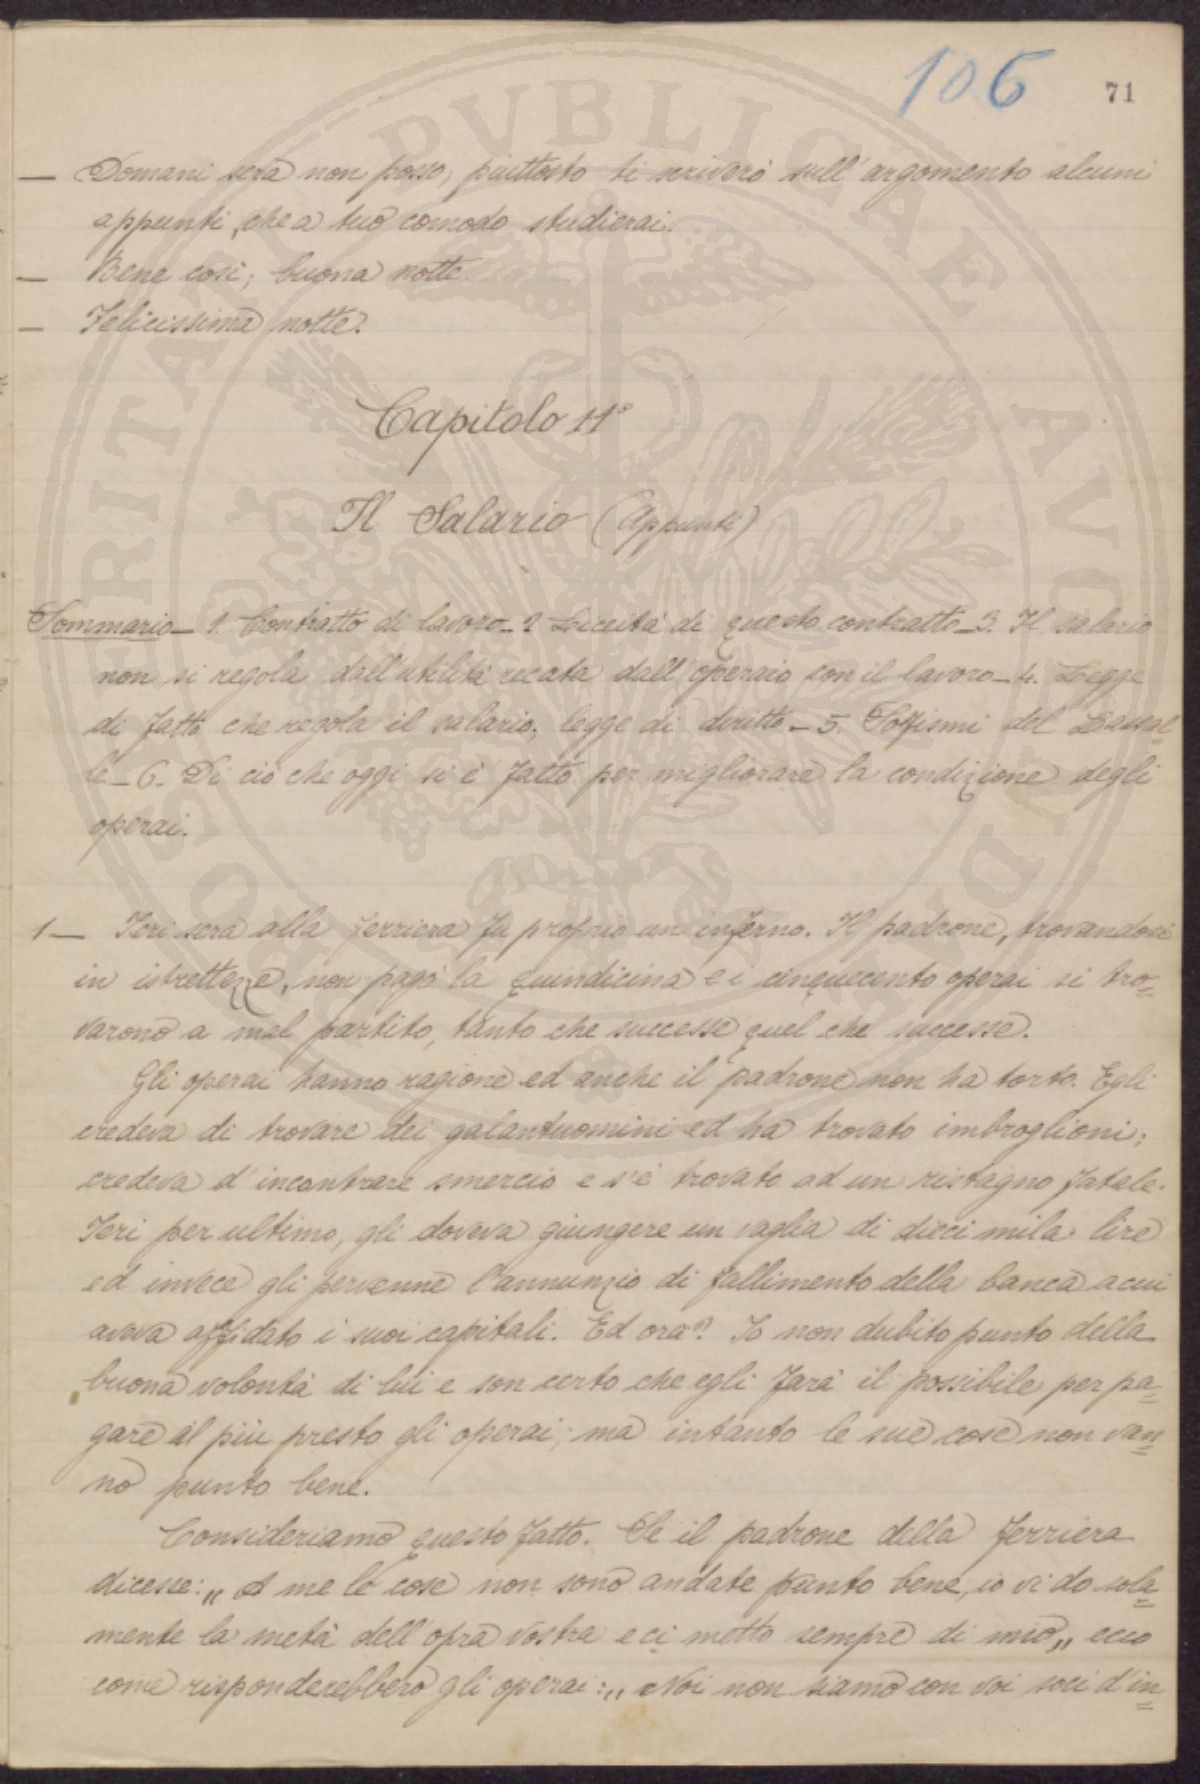 106 71
— Domani sera non posso, piuttosto ti scriverò sull'argomento alcuni
appunti, che a tuo comodo studierai.
— Bene così; buona notte.
— Felicissima notte.
Capitolo 11°
Il Salario (Appunti)
Sommario — 1. Contratto di lavoro — 2 Liceità di questo contratto — 3. Il salario
non si regola dall'utilità recata dall'operaio con il lavoro — 4. Legge
di fatto che regola il salario; legge di diritto — 5. Sofismi del Lassal=
le — 6. Di ciò che oggi si è fatto per migliorare la condizione degli
operai.
1 — Ieri sera alla ferriera fu proprio un inferno. Il padrone, trovandosi
in istrettezze, non pagò la quindicina e i cinquecento operai si tro=
varono a mal partito, tanto che successe quel che successe.
Gli operai hanno ragione ed anche il padrone non ha torto. Egli
credeva di trovare dei galantuomini ed ha trovato imbroglioni;
credeva d'incontrare smercio e s'è trovato ad un ristagno fatale.
Ieri per ultimo, gli doveva giungere un vaglia di dieci mila lire
ed invece gli pervenne l'annunzio di fallimento della banca a cui
aveva affidato i suoi capitali. Ed ora? Io non dubito punto della
buona volontà di lui e son certo che egli farà il possibile per pa=
gare al più presto gli operai; ma intanto le sue cose non van=
no punto bene.
Consideriamo questo fatto. Se il padrone della ferriera
dicesse: „ A me le cose non sono andate punto bene, io vi do sola=
mente la metà dell'opra vostra e ci metto sempre di mio„ ecco
come risponderebbero gli operai: „ Noi non siamo con voi soci d'in=
PVBLICAE AVCTORITATI